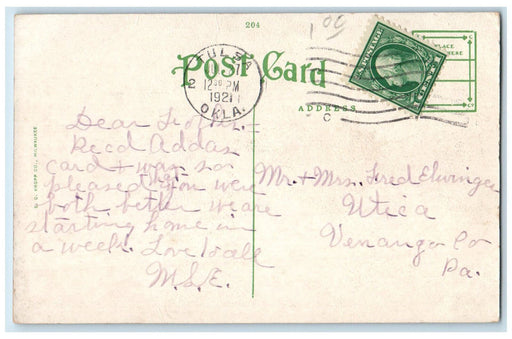 204
1.00
Post Card
TULSA
12 30 PM
1921
OKLA.
ADDRESS
PLACE
HERE
C
Dear
Recd Addas
card & was so
pleased that you were
both better we are
starting home in
a week. Love to all
M.S.E.
Mr. & Mrs. Fred Elwinger
Utica
Venango Co
Pa.
E. C. KROPP CO., MILWAUKEE